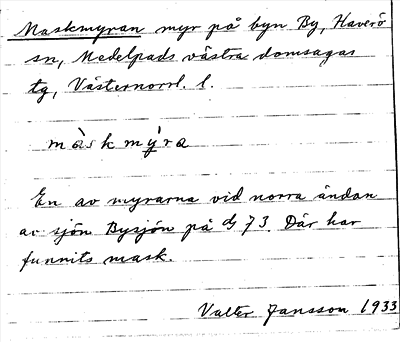 Maskmyran myr på byn By, Haverö
sn, Medelpads västra domsagas
tg, Västernorrl. l.
màskmy̆ra
En av myrarna vid norra ändan
av sjön Bysjön på 73. Där har
funnits mask.
Valter Jansson 1933